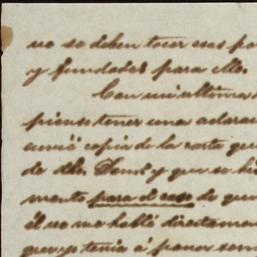 no se deben tocar esas po
y fundadas para ello.
Con mi última
pienso tener una aclarac
envié copia de la carta que
de dho. Send y que se hi
mento para el caso de que
él no me habló directamen
que yo tenía á poner